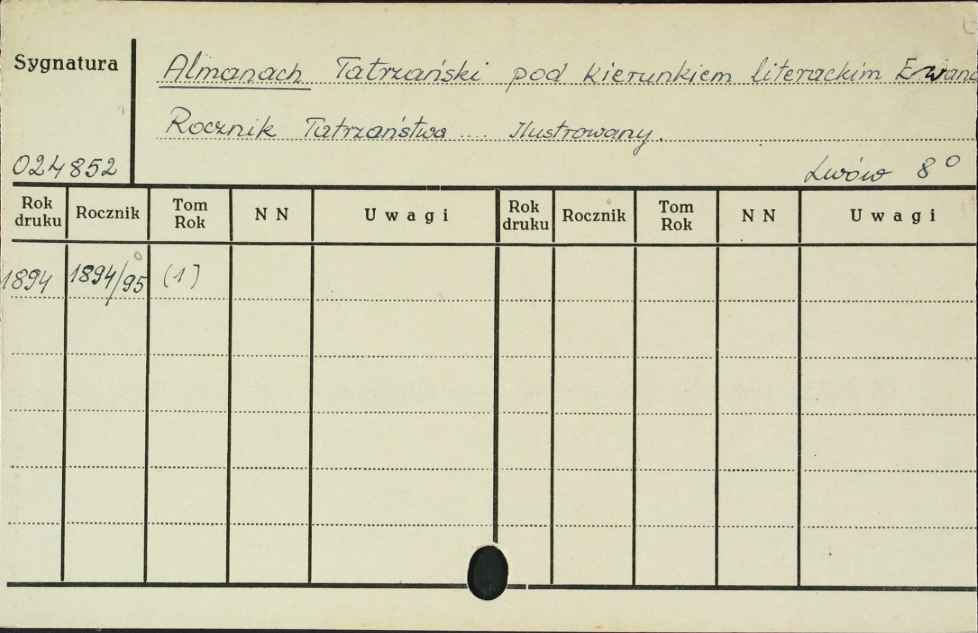 Sygnatura
Almanach Tatrzański pod kierunkiem literackim Erwana
Rocznik Tatrzaństwa ... Ilustrowany.
024852
Lwów 8°
Rok druku Rocznik Tom Rok N N Uwagi Rok druku Rocznik Tom Rok N N Uwagi
1894 1894/95 (1)